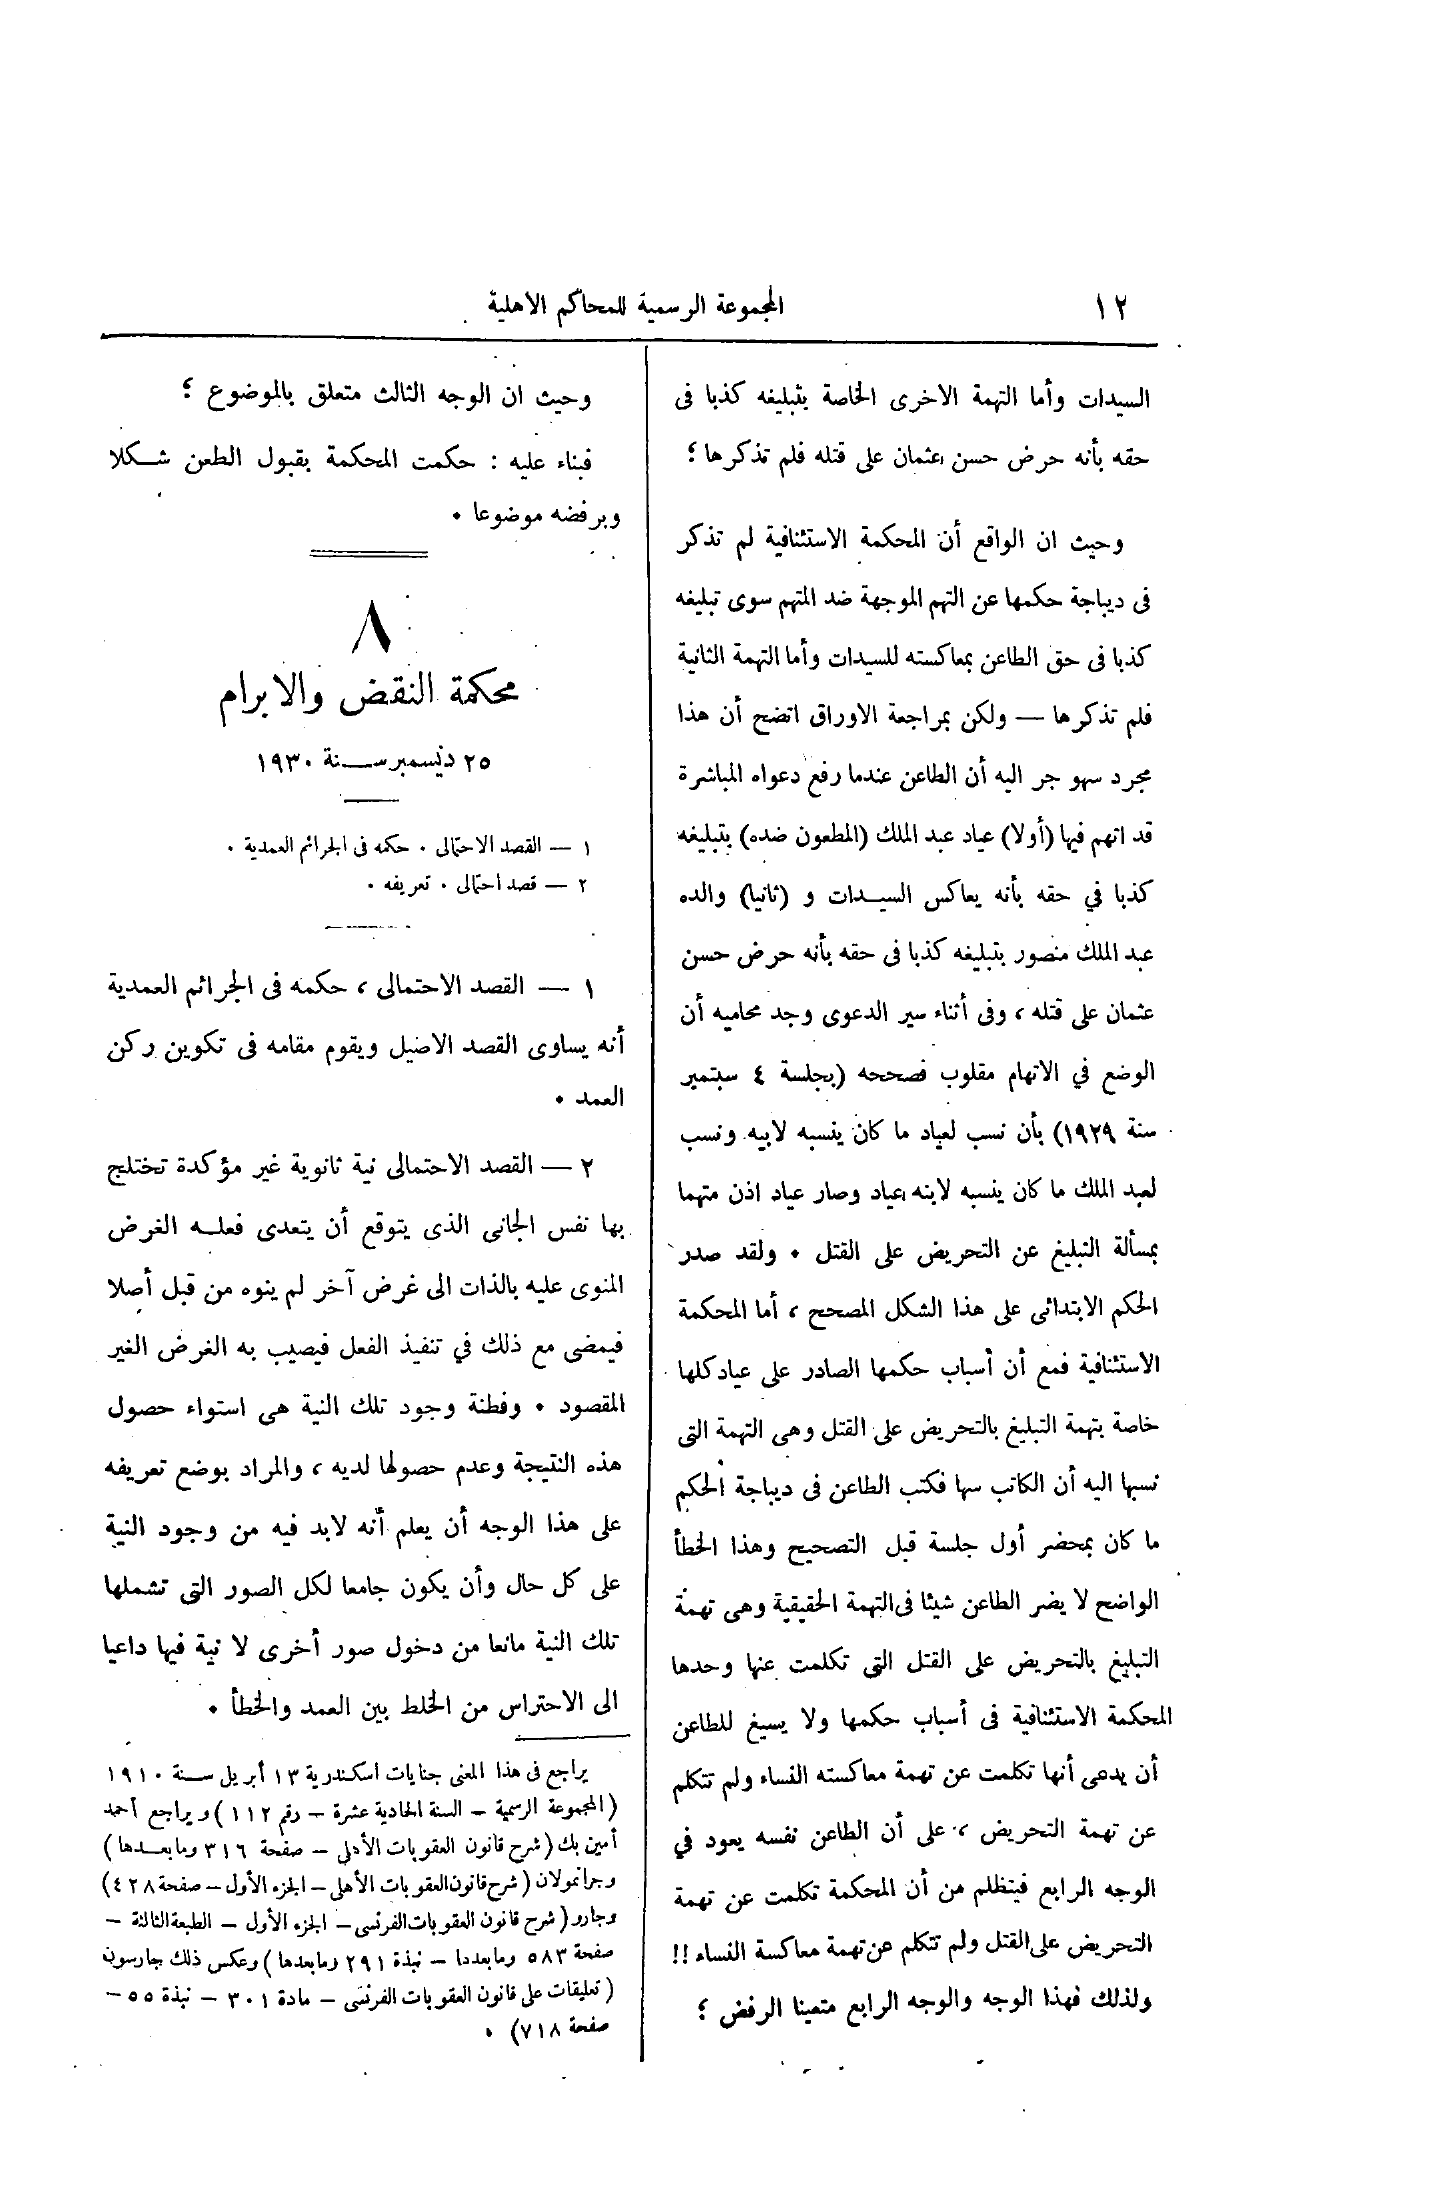 ١٢
المجموعة الرسمية للمحاكم الأهلية
السيدات وأما التهمة الاخرى الخاصة بتبليغه كذبا فى
حقه بأنه حرض حسن عثمان على قتله فلم تذكرها ؛
وحيث ان الواقع أن المحكمة الاستئنافية لم تذكر
فى ديباجة حكمها عن التهم الموجهة ضد المتهم سوى تبليغه
كذبا فى حق الطاعن بمعاكسته للسيدات وأما التهمة الثانية
فلم تذكرها — ولكن بمراجعة الاوراق اتضح أن هذا
مجرد سهو جر اليه أن الطاعن عندما رفع دعواه المباشرة
قد اتهم فيها (أولا) عياد عبد الملك (المطعون ضده) بتبليغه
كذبا في حقه بأنه يعاكس السيدات و (ثانيا) والده
عبد الملك منصور بتبليغه كذبا فى حقه بأنه حرض حسن
عثمان على قتله ، وفى أثناء سير الدعوى وجد محاميه أن
الوضع في الاتهام مقلوب فصححه (بجلسة ٤ سبتمبر
سنة ١٩٢٩) بأن نسب لعياد ما كان ينسبه لابيه ونسب
لعبد الملك ما كان ينسبه لابنه عياد وصار عياد اذن متهما
بمسألة التبليغ عن التحريض على القتل . ولقد صدر
الحكم الابتدائى على هذا الشكل المصحح ، أما المحكمة
الاستئنافية فمع أن أسباب حكمها الصادر على عياد كلها
خاصة بتهمة التبليغ بالتحريض على القتل وهى التهمة التى
نسبها اليه أن الكاتب سها فكتب الطاعن فى ديباجة الحكم
ما كان بمحضر أول جلسة قبل التصحيح وهذا الخطأ
الواضح لا يضر الطاعن شيئا فى التهمة الحقيقية وهى تهمة
التبليغ بالتحريض على القتل التى تكلمت عنها وحدها
المحكمة الاستئنافية فى أسباب حكمها ولا يسيغ للطاعن
أن يدعى أنها تكلمت عن تهمة معاكسته النساء ولم تتكلم
عن تهمة التحريض ، على أن الطاعن نفسه يعود في
الوجه الرابع فيتظلم من أن المحكمة تكلمت عن تهمة
التحريض على القتل ولم تتكلم عن تهمة معاكسة النساء !!
ولذلك فهذا الوجه والوجه الرابع متعينا الرفض ؛
وحيث ان الوجه الثالث متعلق بالموضوع ؛
فبناء عليه : حكمت المحكمة بقبول الطعن شكلا
وبرفضه موضوعا .
٨
محكمة النقض والابرام
٢٥ ديسمبر سنة ١٩٣٠
١ — القصد الاحتمالى . حكمه فى الجرائم العمدية .
٢ — قصد احتمالى . تعريفه .
١ — القصد الاحتمالى ، حكمه فى الجرائم العمدية
أنه يساوى القصد الاصيل ويقوم مقامه فى تكوين ركن
العمد .
٢ — القصد الاحتمالى نية ثانوية غير مؤكدة تختلج
بها نفس الجانى الذى يتوقع أن يتعدى فعله الغرض
المنوى عليه بالذات الى غرض آخر لم ينوه من قبل أصلا
فيمضى مع ذلك في تنفيذ الفعل فيصيب به الغرض الغير
المقصود . وفطنة وجود تلك النية هى استواء حصول
هذه النتيجة وعدم حصولها لديه ، والمراد بوضع تعريفه
على هذا الوجه أن يعلم أنه لابد فيه من وجود النية
على كل حال وأن يكون جامعا لكل الصور التى تشملها
تلك النية مانعا من دخول صور أخرى لا نية فيها داعيا
الى الاحتراس من الخلط بين العمد والخطأ .
يراجع فى هذا المعنى جنايات اسكندرية ١٣ أبريل سنة ١٩١٠
(المجموعة الرسمية – السنة الحادية عشرة – رقم ١١٢) ويراجع أحمد
أمين بك (شرح قانون العقوبات الأهلى – صفحة ٣١٦ وما بعدها)
وجرانمولان (شرح قانون العقوبات الأهلى – الجزء الأول – صفحة ٤٢٨)
وجارو (شرح قانون العقوبات الفرنسى – الجزء الأول – الطبعة الثالثة –
صفحة ٥٨٣ وما بعدها – نبذة ٢٩١ وما بعدها) وعكس ذلك جارسون
(تعليقات على قانون العقوبات الفرنسى – مادة ٣٠١ – نبذة ٥٥ –
صفحة ٧١٨) .